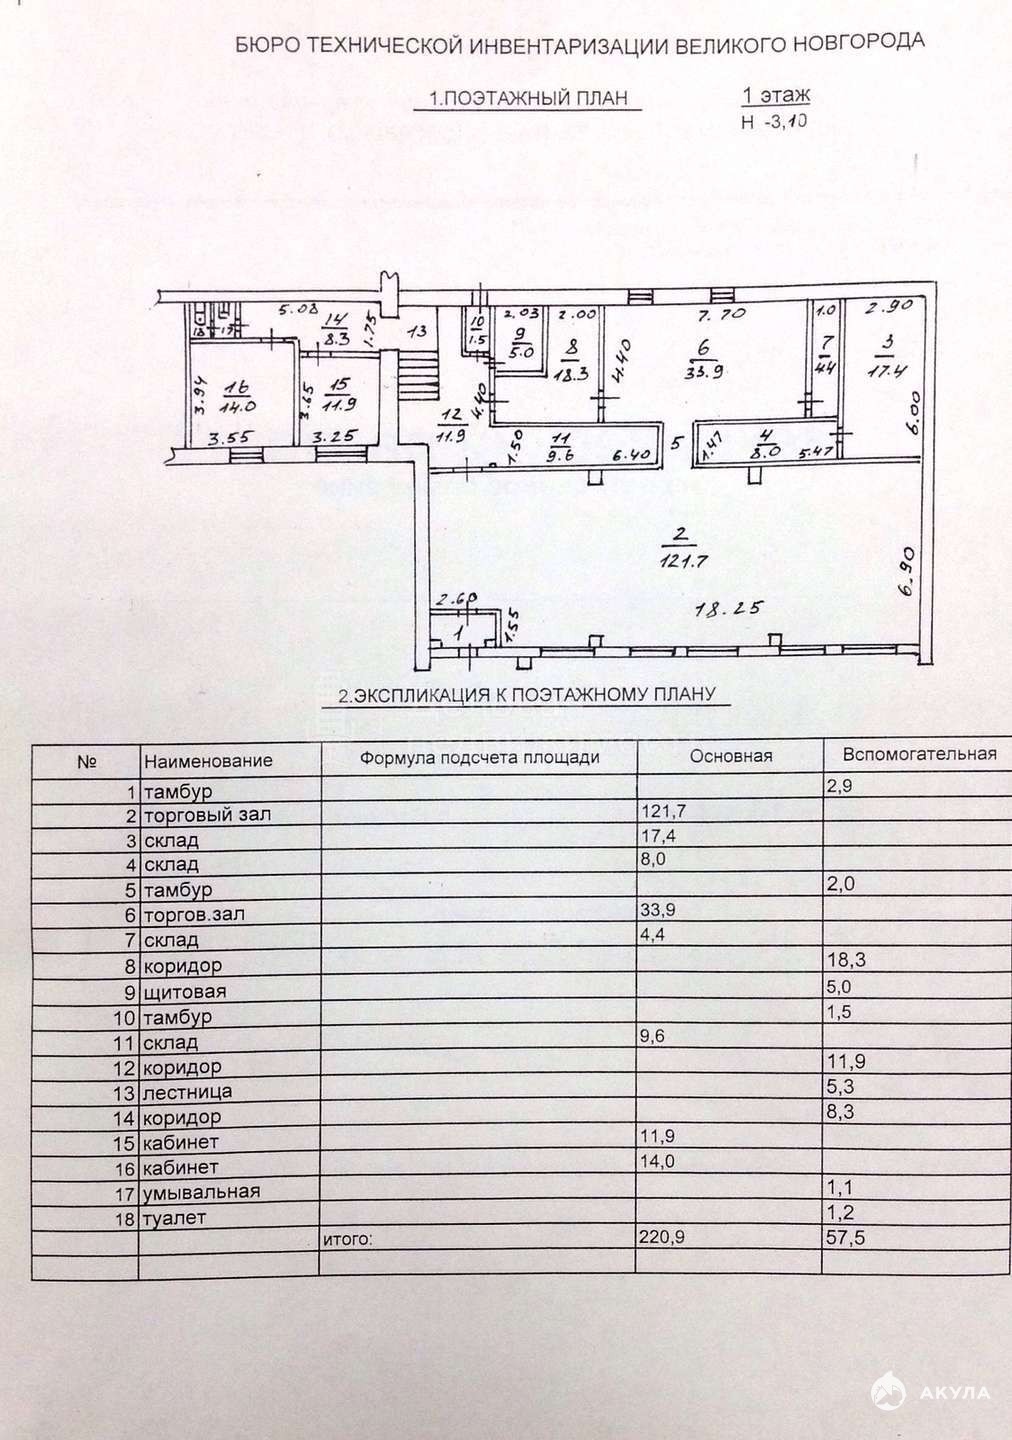 БЮРО ТЕХНИЧЕСКОЙ ИНВЕНТАРИЗАЦИИ ВЕЛИКОГО НОВГОРОДА
1.ПОЭТАЖНЫЙ ПЛАН
1 этаж
Н -3,10
5.08
14
8.3
1.75
13
10
1.5
2.03
9
5.0
2.00
8
18.3
4.40
7.70
6
33.9
1.0
7
4.4
2.90
3
17.4
6.00
18
17
3.94
16
14.0
3.55
3.65
15
11.9
3.25
12
11.9
4.40
1.50
11
9.6
6.40
5
1.47
4
8.0
5.47
2
121.7
18.25
6.90
2.60
1
1.55
2.ЭКСПЛИКАЦИЯ К ПОЭТАЖНОМУ ПЛАНУ
№ Наименование Формула подсчета площади Основная Вспомогательная
1 тамбур 2,9
2 торговый зал 121,7
3 склад 17,4
4 склад 8,0
5 тамбур 2,0
6 торгов.зал 33,9
7 склад 4,4
8 коридор 18,3
9 щитовая 5,0
10 тамбур 1,5
11 склад 9,6
12 коридор 11,9
13 лестница 5,3
14 коридор 8,3
15 кабинет 11,9
16 кабинет 14,0
17 умывальная 1,1
18 туалет 1,2
итого: 220,9 57,5
АКУЛА